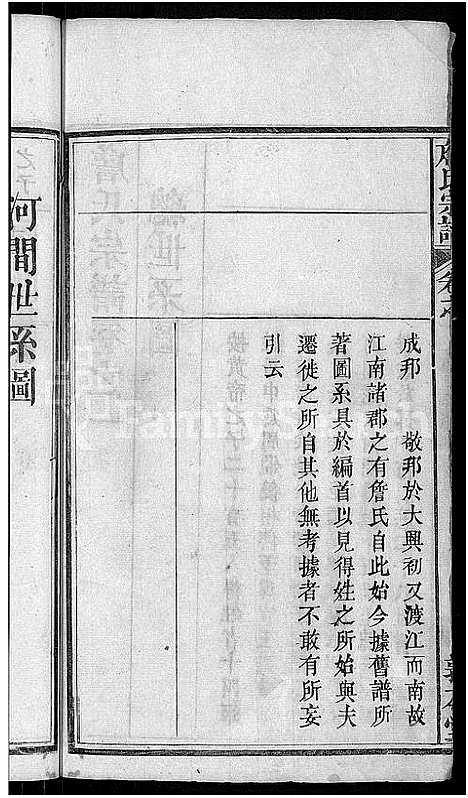 詹氏宗譜
成邦 敬邦於大興初又渡江而南故
江南諸郡之有詹氏自此始今據舊譜所
著圖系具於編首以見得姓之所始與夫
遷徙之所自其他無考據者不敢有所妄
引云
河間世系圖